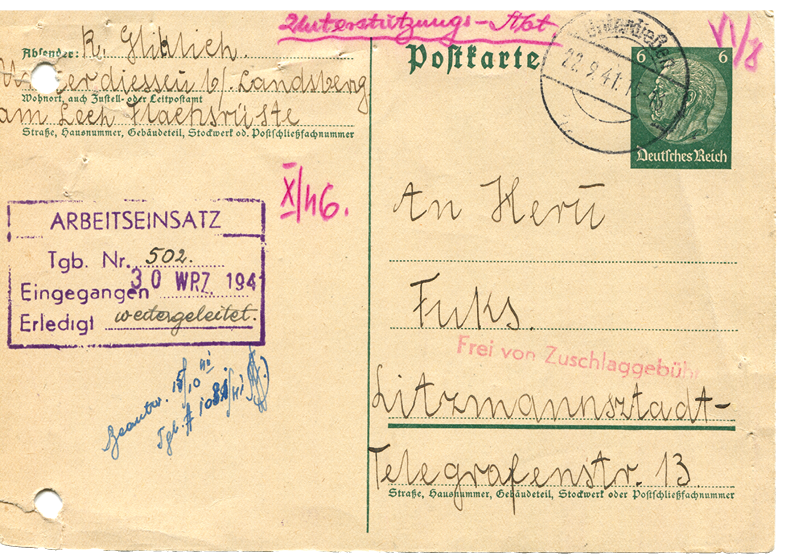 Unterstützungs-Abt
VI/8
Absender: R. Gliklich.
Unterdiessen b/. Landsberg
Wohnort, auch Zustell- oder Leitpostamt
am Lech Flachsröste
Straße, Hausnummer, Gebäudeteil, Stockwerk od. Postschließfachnummer
Postkarte
22.9.41.
6 6
Deutsches Reich
X/46.
ARBEITSEINSATZ
Tgb. Nr. 502.
Eingegangen 30 WRZ. 1941
Erledigt weitergeleitet.
Beantw. 15/10 41
Tgb. #
An Herrn
Fuks.
Frei von Zuschlaggebühr
Litzmannsztadt-
Telegrafenstr. 13
Straße, Hausnummer, Gebäudeteil, Stockwerk oder Postschließfachnummer